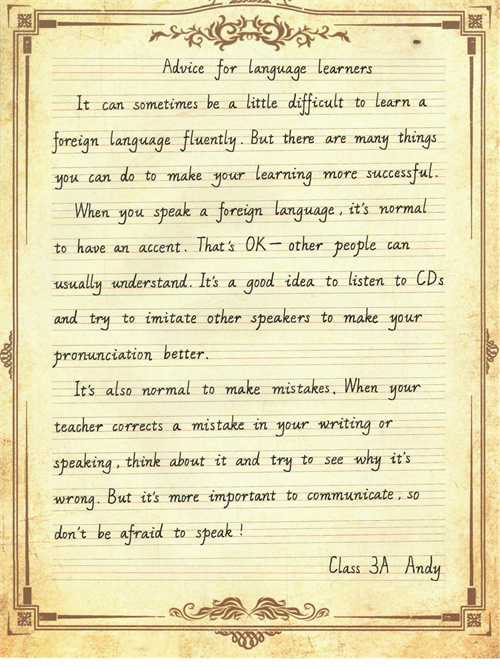 Advice for language learners
It can sometimes be a little difficult to learn a
foreign language fluently. But there are many things
you can do to make your learning more successful.
When you speak a foreign language, it's normal
to have an accent. That's OK — other people can
usually understand. It's a good idea to listen to CDs
and try to imitate other speakers to make your
pronunciation better.
It's also normal to make mistakes. When your
teacher corrects a mistake in your writing or
speaking, think about it and try to see why it's
wrong. But it's more important to communicate, so
don't be afraid to speak!
Class 3A Andy